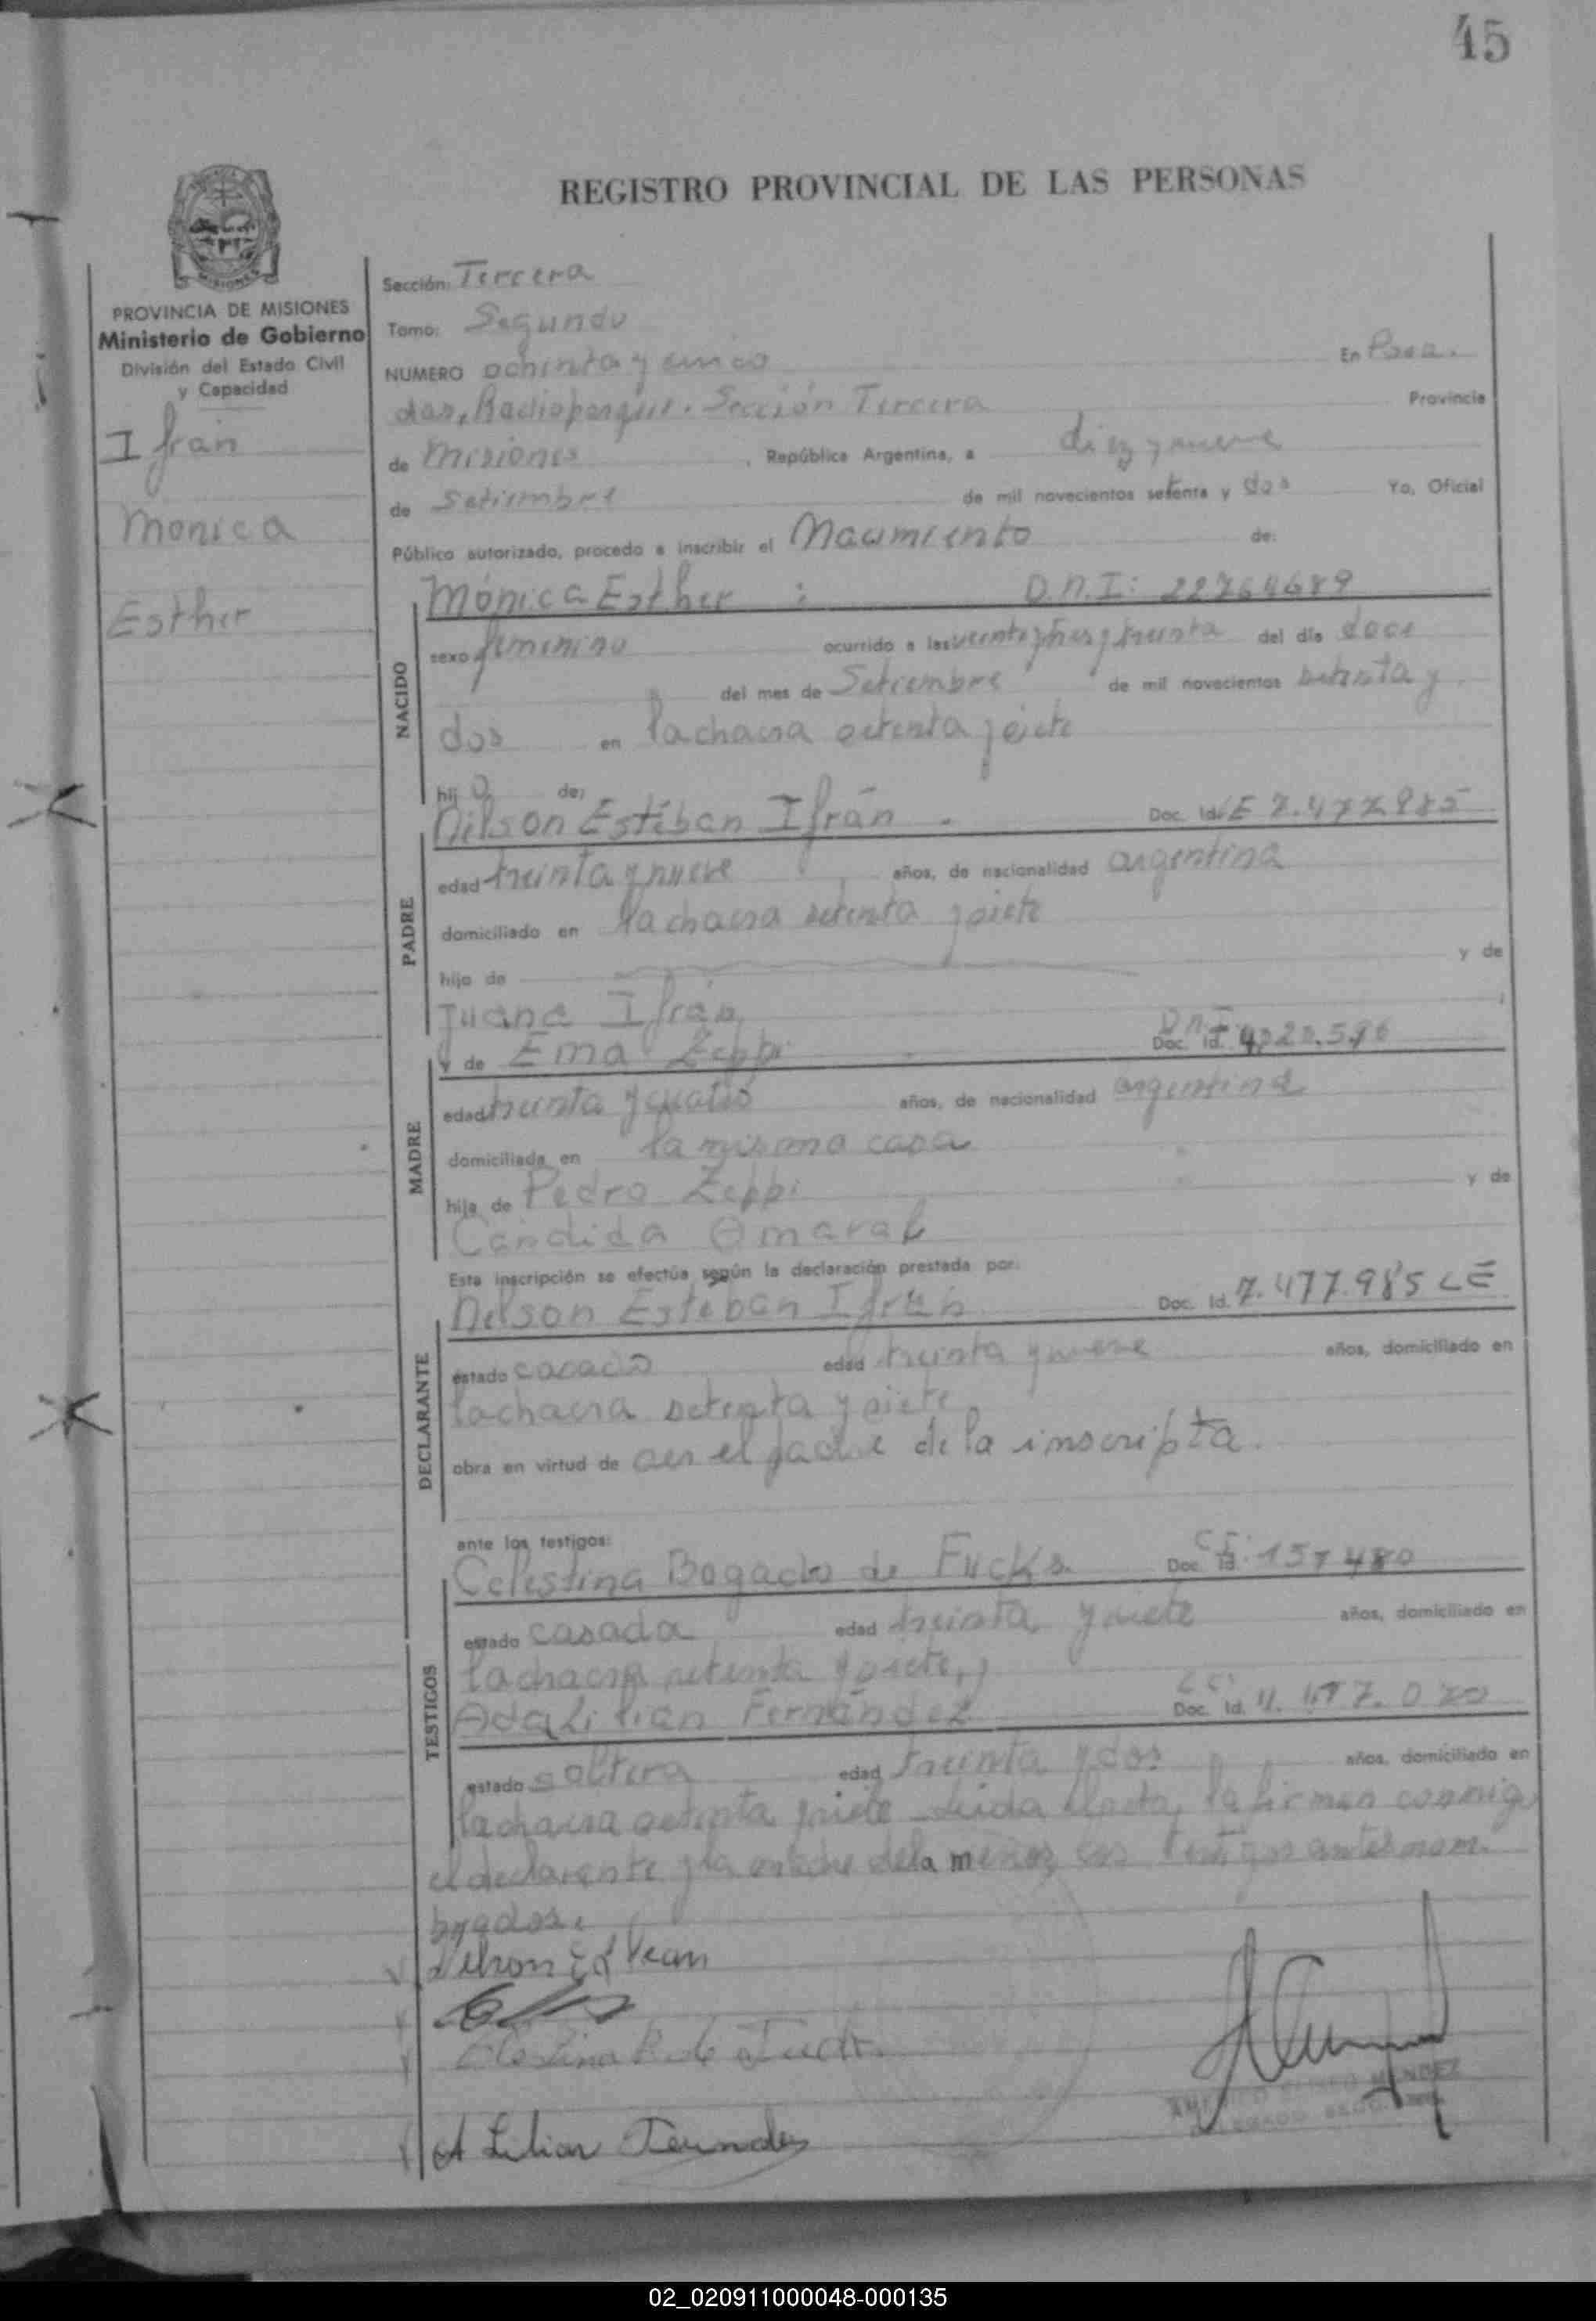 45
REGISTRO PROVINCIAL DE LAS PERSONAS
MISIONES
PROVINCIA DE MISIONES
Ministerio de Gobierno
División del Estado Civil
y Capacidad
Ifran
Monica
Esther
Sección: Tercera
Tomo: Segundo
NUMERO ochenta y cinco En Posa.
das, Radioparque. Sección Tercera Provincia
de Misiones, República Argentina, a diez y nueve
de Setiembre de mil novecientos setenta y dos Yo, Oficial
Público autorizado, procedo a inscribir el Nacimiento de:
NACIDO
Mónica Esther : D.N.I: 22764689
sexo femenino ocurrido a las veinte y tres y treinta del día doce
del mes de Setiembre de mil novecientos setenta y
dos en la chacra setenta y siete
hij de:
Nelson Estéban Ifrán. Doc. Id. LE 7.477.985
PADRE
edad treinta y nueve años, de nacionalidad argentina
domiciliado en la chacra setenta y siete
hijo de y de
Juana Ifrán
y de Ema Zeppi D.N.I Doc. Id.
MADRE
edad treinta y cuatro años, de nacionalidad argentina
domiciliada en la misma casa
hija de Pedro Zeppi y de
Cándida Amaral
Esta inscripción se efectúa según la declaración prestada por:
Nelson Esteban Ifrán Doc. Id. 7.477.985 LE
DECLARANTE
estado casado edad treinta y nueve años, domiciliado en
la chacra setenta y siete
obra en virtud de ser el padre de la inscripta.
ante los testigos:
Celestina Bogado de Fucks. Doc. Id. 157480
TESTIGOS
estado casada edad treinta y siete años, domiciliado en
la chacra setenta y siete, y
Ada Lilian Fernández Doc. Id.
estado soltera edad treinta y dos años, domiciliado en
la chacra setenta y siete leida el acta, la firman conmigo
el declarante y la madre de la menor, los testigos antes nom
brados.
Nelson E. Ifran
A Lilian Fernandez
MENDEZ
02_020911000048-000135